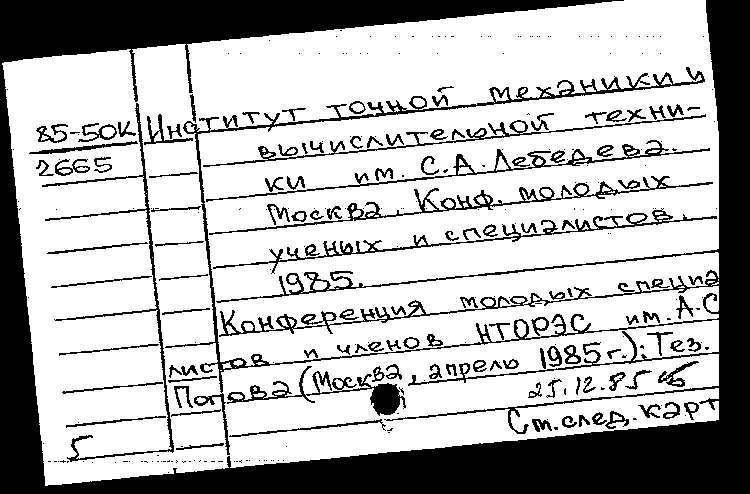 85-50К Институт точной механики и
2665 вычислительной техни-
ки им. С.А. Лебедева.
Москва. Конф. молодых
ученых и специалистов.
1985.
Конференция молодых специа
листов и членов НТОРЭС им. А.С
Попова (Москва, апрель 1985 г.): Тез.
25.12.85
5 См. след. карт